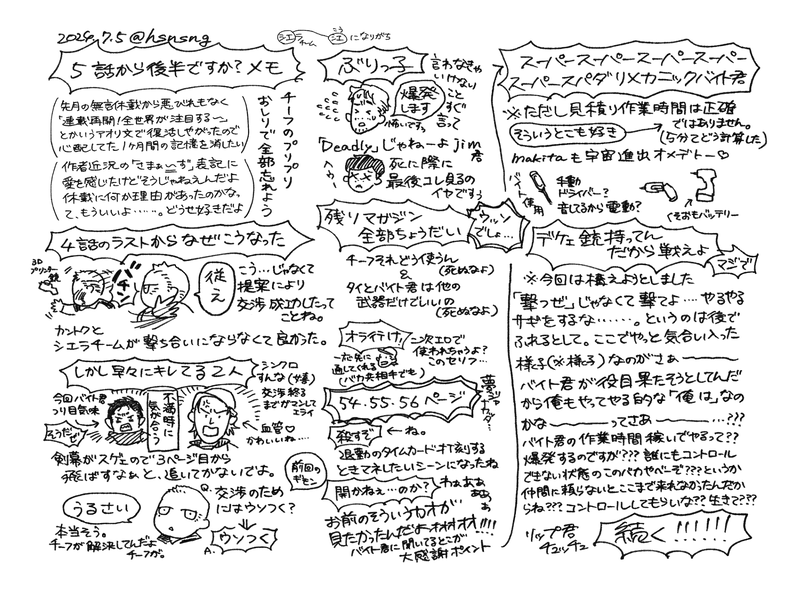 2024.7.5 @hsnsng
シエラチーム
シエこうになりがち
5話から後半ですか?メモ
先月の無言休載から悪びれもなく
「連載再開!全世界が注目する〜」
とかいうアオリ文で復活しやがったので
心配してた1ヶ月間の記憶を消したい
作者近況の「さまぁいず」表記に
愛を感じたけどそうじゃねえんだよ
休載に何か理由があったのかな。
て、もういいよ……。どうせ好きだよ
チーフのプリプリ
おしりで全部忘れよう
4話のラストからなぜこうなった
3Dプリンター銃
バチン
従え
こう…じゃなくて
提案により
交渉成立したって
ことね。
カントクと
シエラチームが撃ち合いにならなくて良かった。
しかし早々にキレてる2人
シンクロ
すんな(爆)
交渉終る
までガマンして
エライ
今回バイト君
つり目気味
そうだぞ
不満時に
気が合う
血管♡
かわいいね…
剣幕がスゲェので3ページ目から
飛ばすなぁと、追いてかないでよ。
うるさい
本当そう。
チーフが解決してんだよ
チーフが。
Q.交渉のため
にはウソつく?
A.ウソつく
ぶりっ子
言わなきゃ
いけない
こと
すぐ
言って
爆発
します
怖いですぅ
「Deadly」じゃねーよjim君
へぅ〜
死に際に
最後コレ見るの
イヤですぅ
残りマガジン
全部ちょうだい
ウッソ
でしょ…
チーフそれどう使うん
(死ぬなよ)
&
タイとバイト君は他の
武器だけでいいの
(死ぬなよ)
オライテけ!
一応先に
通してくれる
(バカ共相手でも)
二次エロで
使われちゃうよ?
このセリフ…
54.55.56ページ
殺すぞ
←ね。
退勤のタイムカードオT刻する
ときマネしたいシーンになったね
前回の
ギモン
開かねぇ…のか?
わぁぁぁぁぁぁ
お前のそういうカオが
見たかったんだよオオオオ!!!!
バイト君に聞いてるとこが
大感謝ポイント
スーパースーパースーパースーパー
スーパースパダリメカニックバイト君
※ただし見積り作業時間は正確
ではありません。
(5分てどう計算した)
そういうとこも好き
makitaも宇宙進出オメデトー♡
バイト
使用
手動
ドライバー?
音してるから電動?
くそおもバッテリー
デケェ銃持ってん
だから戦えよ
マジで
※今回は構えようとしました
「撃つぜ」じゃなくて撃てよ…やるやる
サギをするな……。というのは後で
ふれるとして。ここでやっと気合い入った
様子(※様子)なのがさぁ――
バイト君が役目果たそうとしてんだ
から俺もやってやる的な「俺は」なの
かな――ってさぁ――…???
バイト君の作業時間稼いでやるって??
爆発するのですが???誰にもコントロール
できない状態のこのバカやべーぞ???というか
仲間に頼らないとここまで来れなかったんだか
らね???コントロールしてもらいな??生きて???
リップ君
チュッチュ
続く!!!!!!